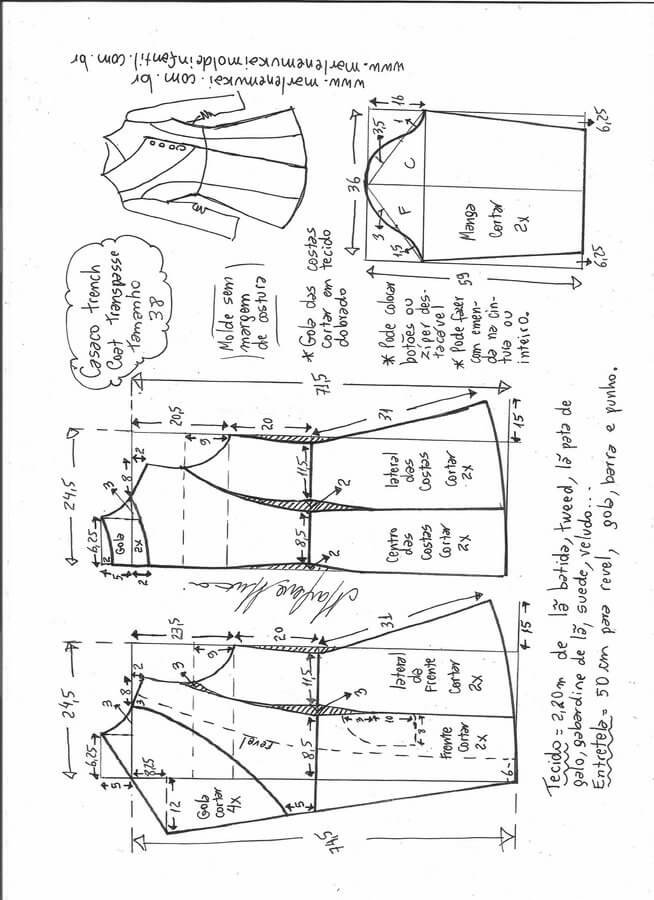 www.marlenemukaimoldeinfantil.com.br
www.marlenemukai.com.br
Casaco trench
Coat transpasse
tamanho
38
Molde sem
margem
de costura
* Gola das costas
cortar em tecido
dobrado
* Pode colocar
botões ou
ziper des-
tacável
* Pode fazer
com emen-
da na cin-
tura ou
inteiro.
16
1
3,5
C
36
F
3
1,5
Manga
Cortar
2x
6,25
6,25
59
71,5
20,5
20
31
15
9
2
8
3
24,5
6,25
Gola
2x
2
5
2
11,5
8,5
2
2
lateral
das
Costas
Cortar
2x
Centro
das
Costas
Cortar
2x
Marlene Mukai
23,5
20
31
15
9
2
3
8
3
3
24,5
6,25
5
8,25
12
revel
Gola
cortar
4x
5
11,5
8,5
3
3
10
8
lateral
da
Frente
Cortar
2x
Frente
Cortar
2x
6
74,5
Tecido = 2,20m de lã batida, tweed, lã pata de
galo, gabardine de lã, suede, veludo...
Entretela = 50 cm para revel, gola, barra e punho.